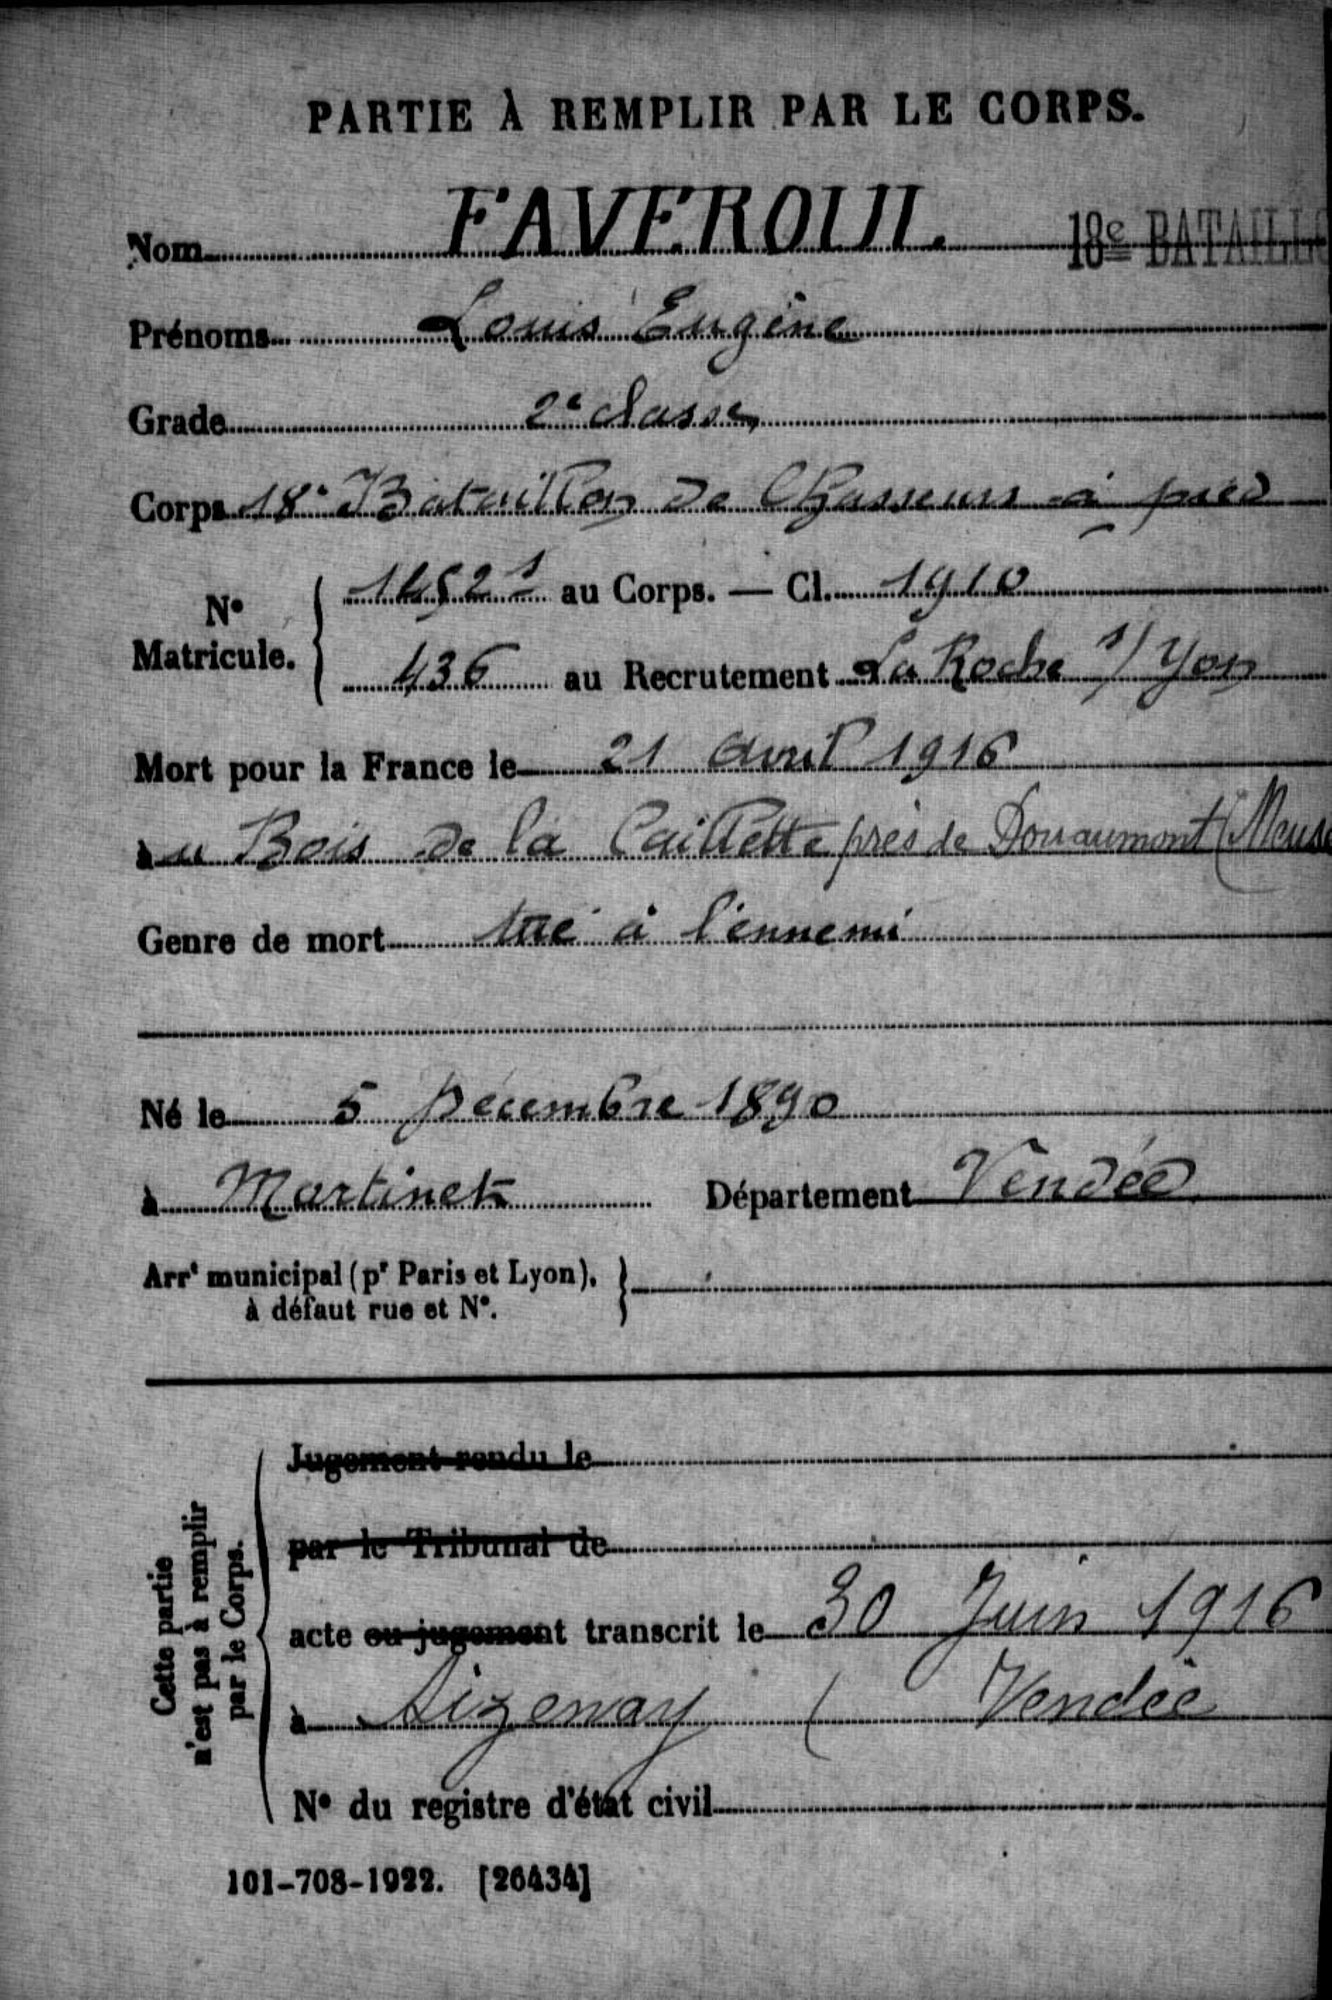 PARTIE À REMPLIR PAR LE CORPS.
Nom FAVEROUL. 18e BATAILLO
Prénoms Louis Eugène
Grade 2e classe
Corps 18e Bataillon de Chasseurs à pied
N° Matricule. { au Corps. — Cl. 1910
436 au Recrutement La Roche s/ Yon
Mort pour la France le 21 avril 1916
au Bois de la Caillette près de Douaumont (Meuse
Genre de mort tué à l'ennemi
Né le 5 Décembre 1890
à Martinet Département Vendée
Arrt municipal (pr Paris et Lyon), }
à défaut rue et N°.
Cette partie n'est pas à remplir par le Corps.
Jugement rendu le
par le Tribunal de
acte ou jugement transcrit le 30 Juin 1916
à Aizenay ( Vendée
N° du registre d'état civil
101-708-1922. [26434]